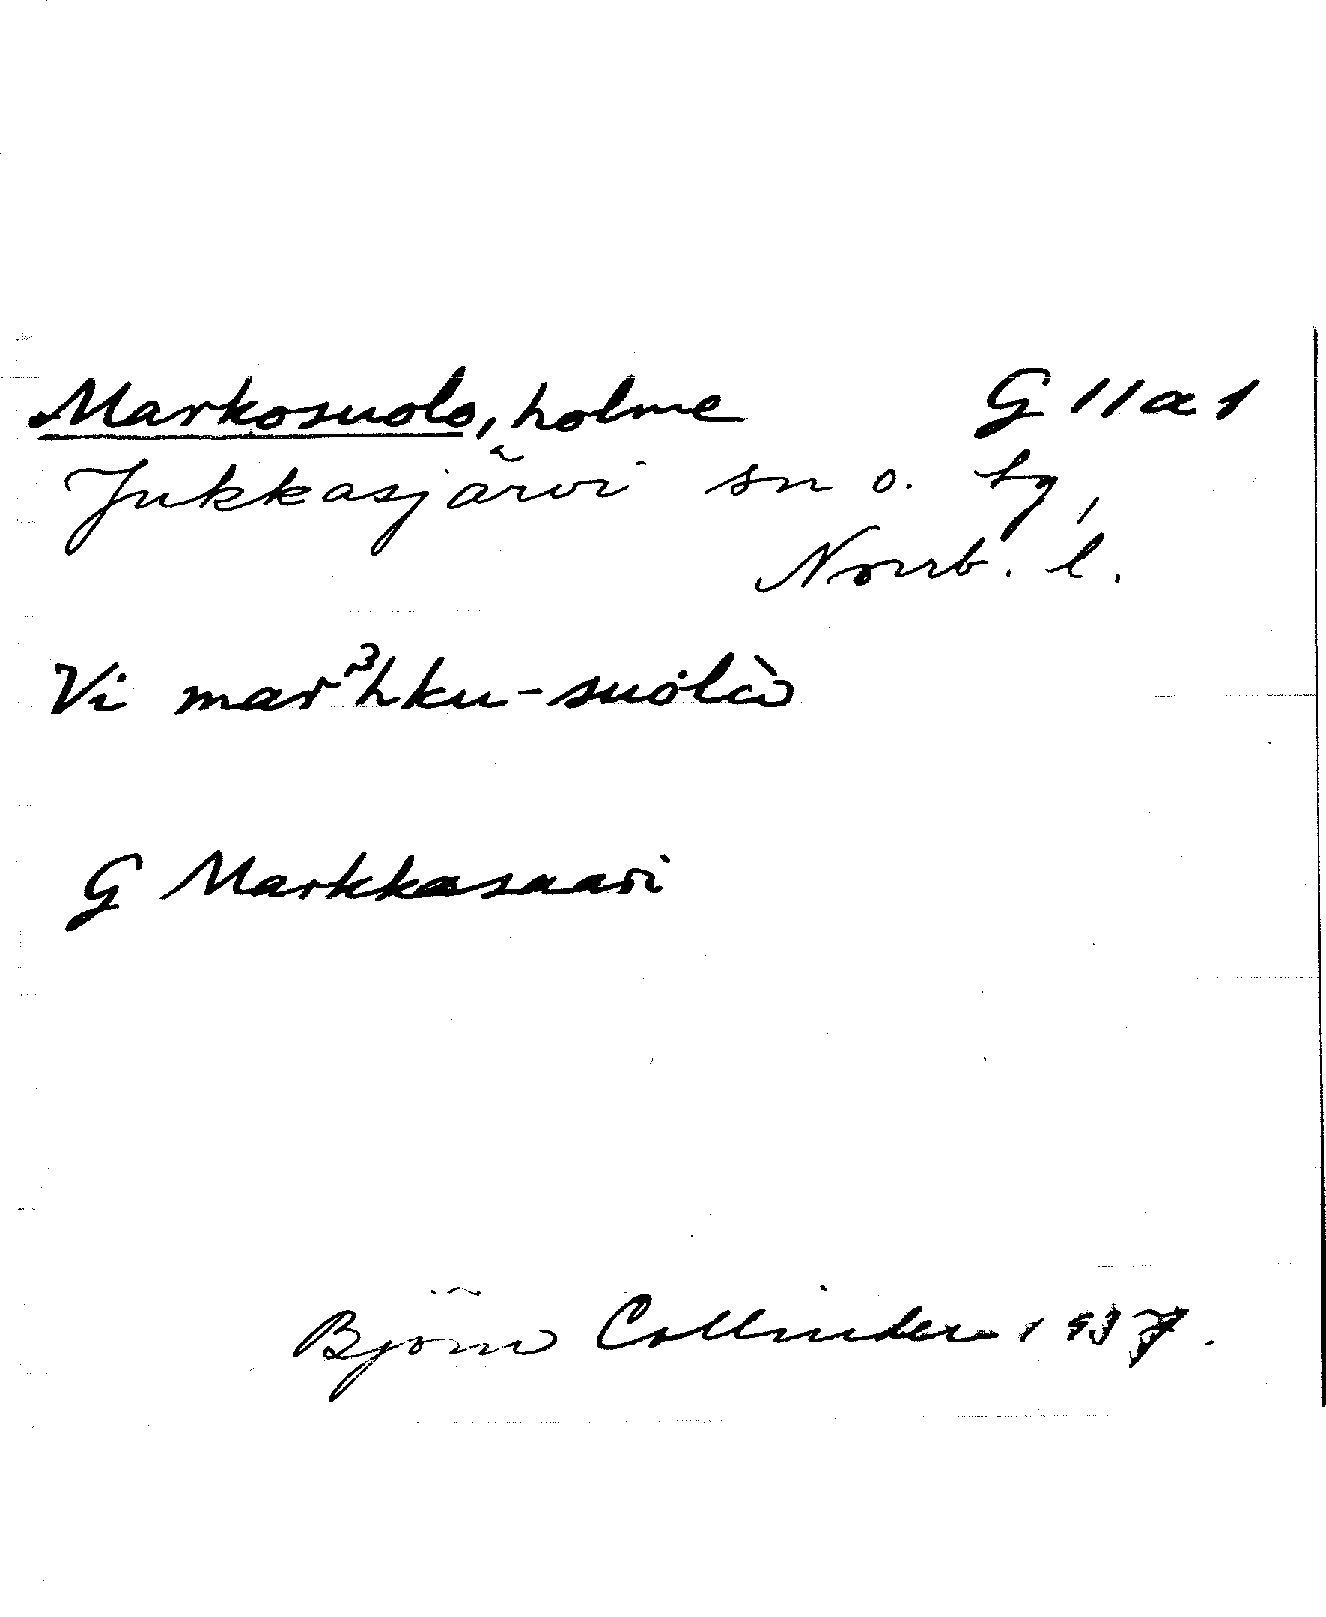 Markosuolo, holme G 11 a 1
Jukkasjärvi sn o. by,
Norrb. l.
Vi mar³hku-suólà
G Markkasaari
Björn Collinder 1937.